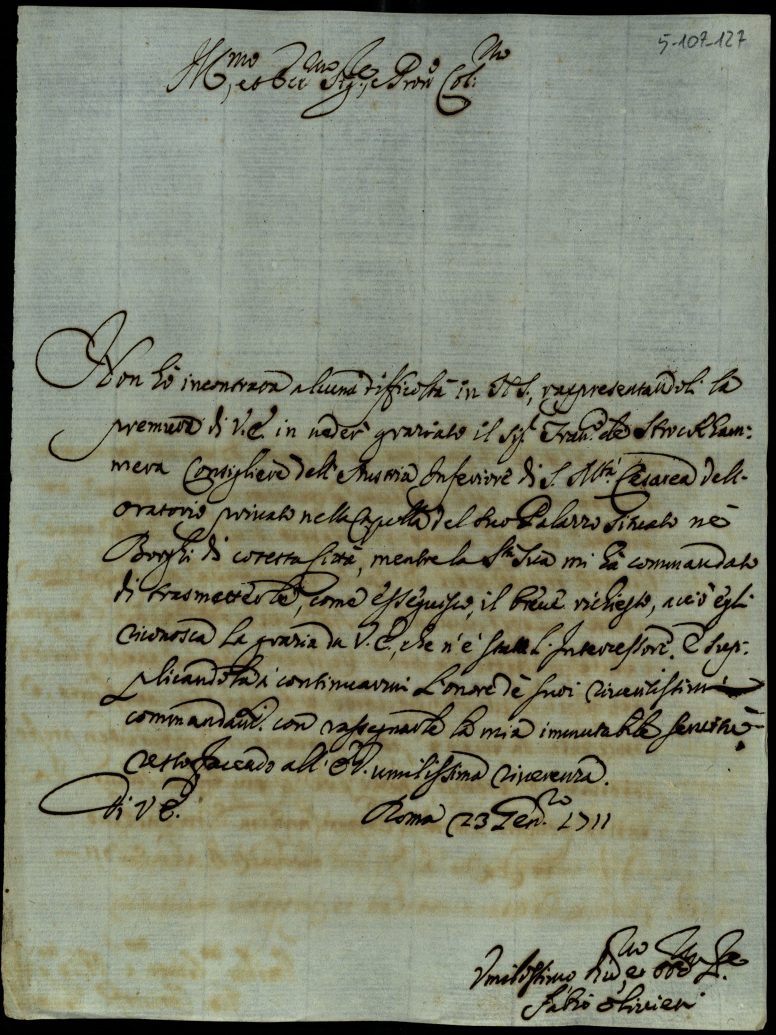 5-107-127
Ill.mo et Ecc.mo Sig.re e Pron Col.mo
Non hò incontrata alcuna difficoltà in S.S., rappresentandoli la
premura di V.E. in veder graziato il Sig.r Fran.co de Strockham=
mera Consigliere dell'Austria Inferiore di S. M.tà Cesarea dell-
oratorio privato nella Cappella del suo Palazzo situato nè
Borghi di cotesta Città, mentre la S.tà Sua mi hà commandato
di trasmetterle, come esseguisco, il breve richiesto, acciò egli
riconosca la grazia da V.E., che n'è stata l'Intercessore. E sup=
plicandola à continuarmi l'onore dè suoi riveritissimi
commandam.ti con rassegnarle la mia immutabile servitù
resto facendo all'E.V. umilissima riverenza.
Di V.E.
Roma 23 Gen.ro 1711
Umilissimo Div.mo et Obb.mo S.re
Fabio Olivieri